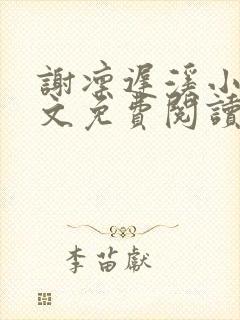 謝凜遲溪小
文免費閱讀
李苗獻